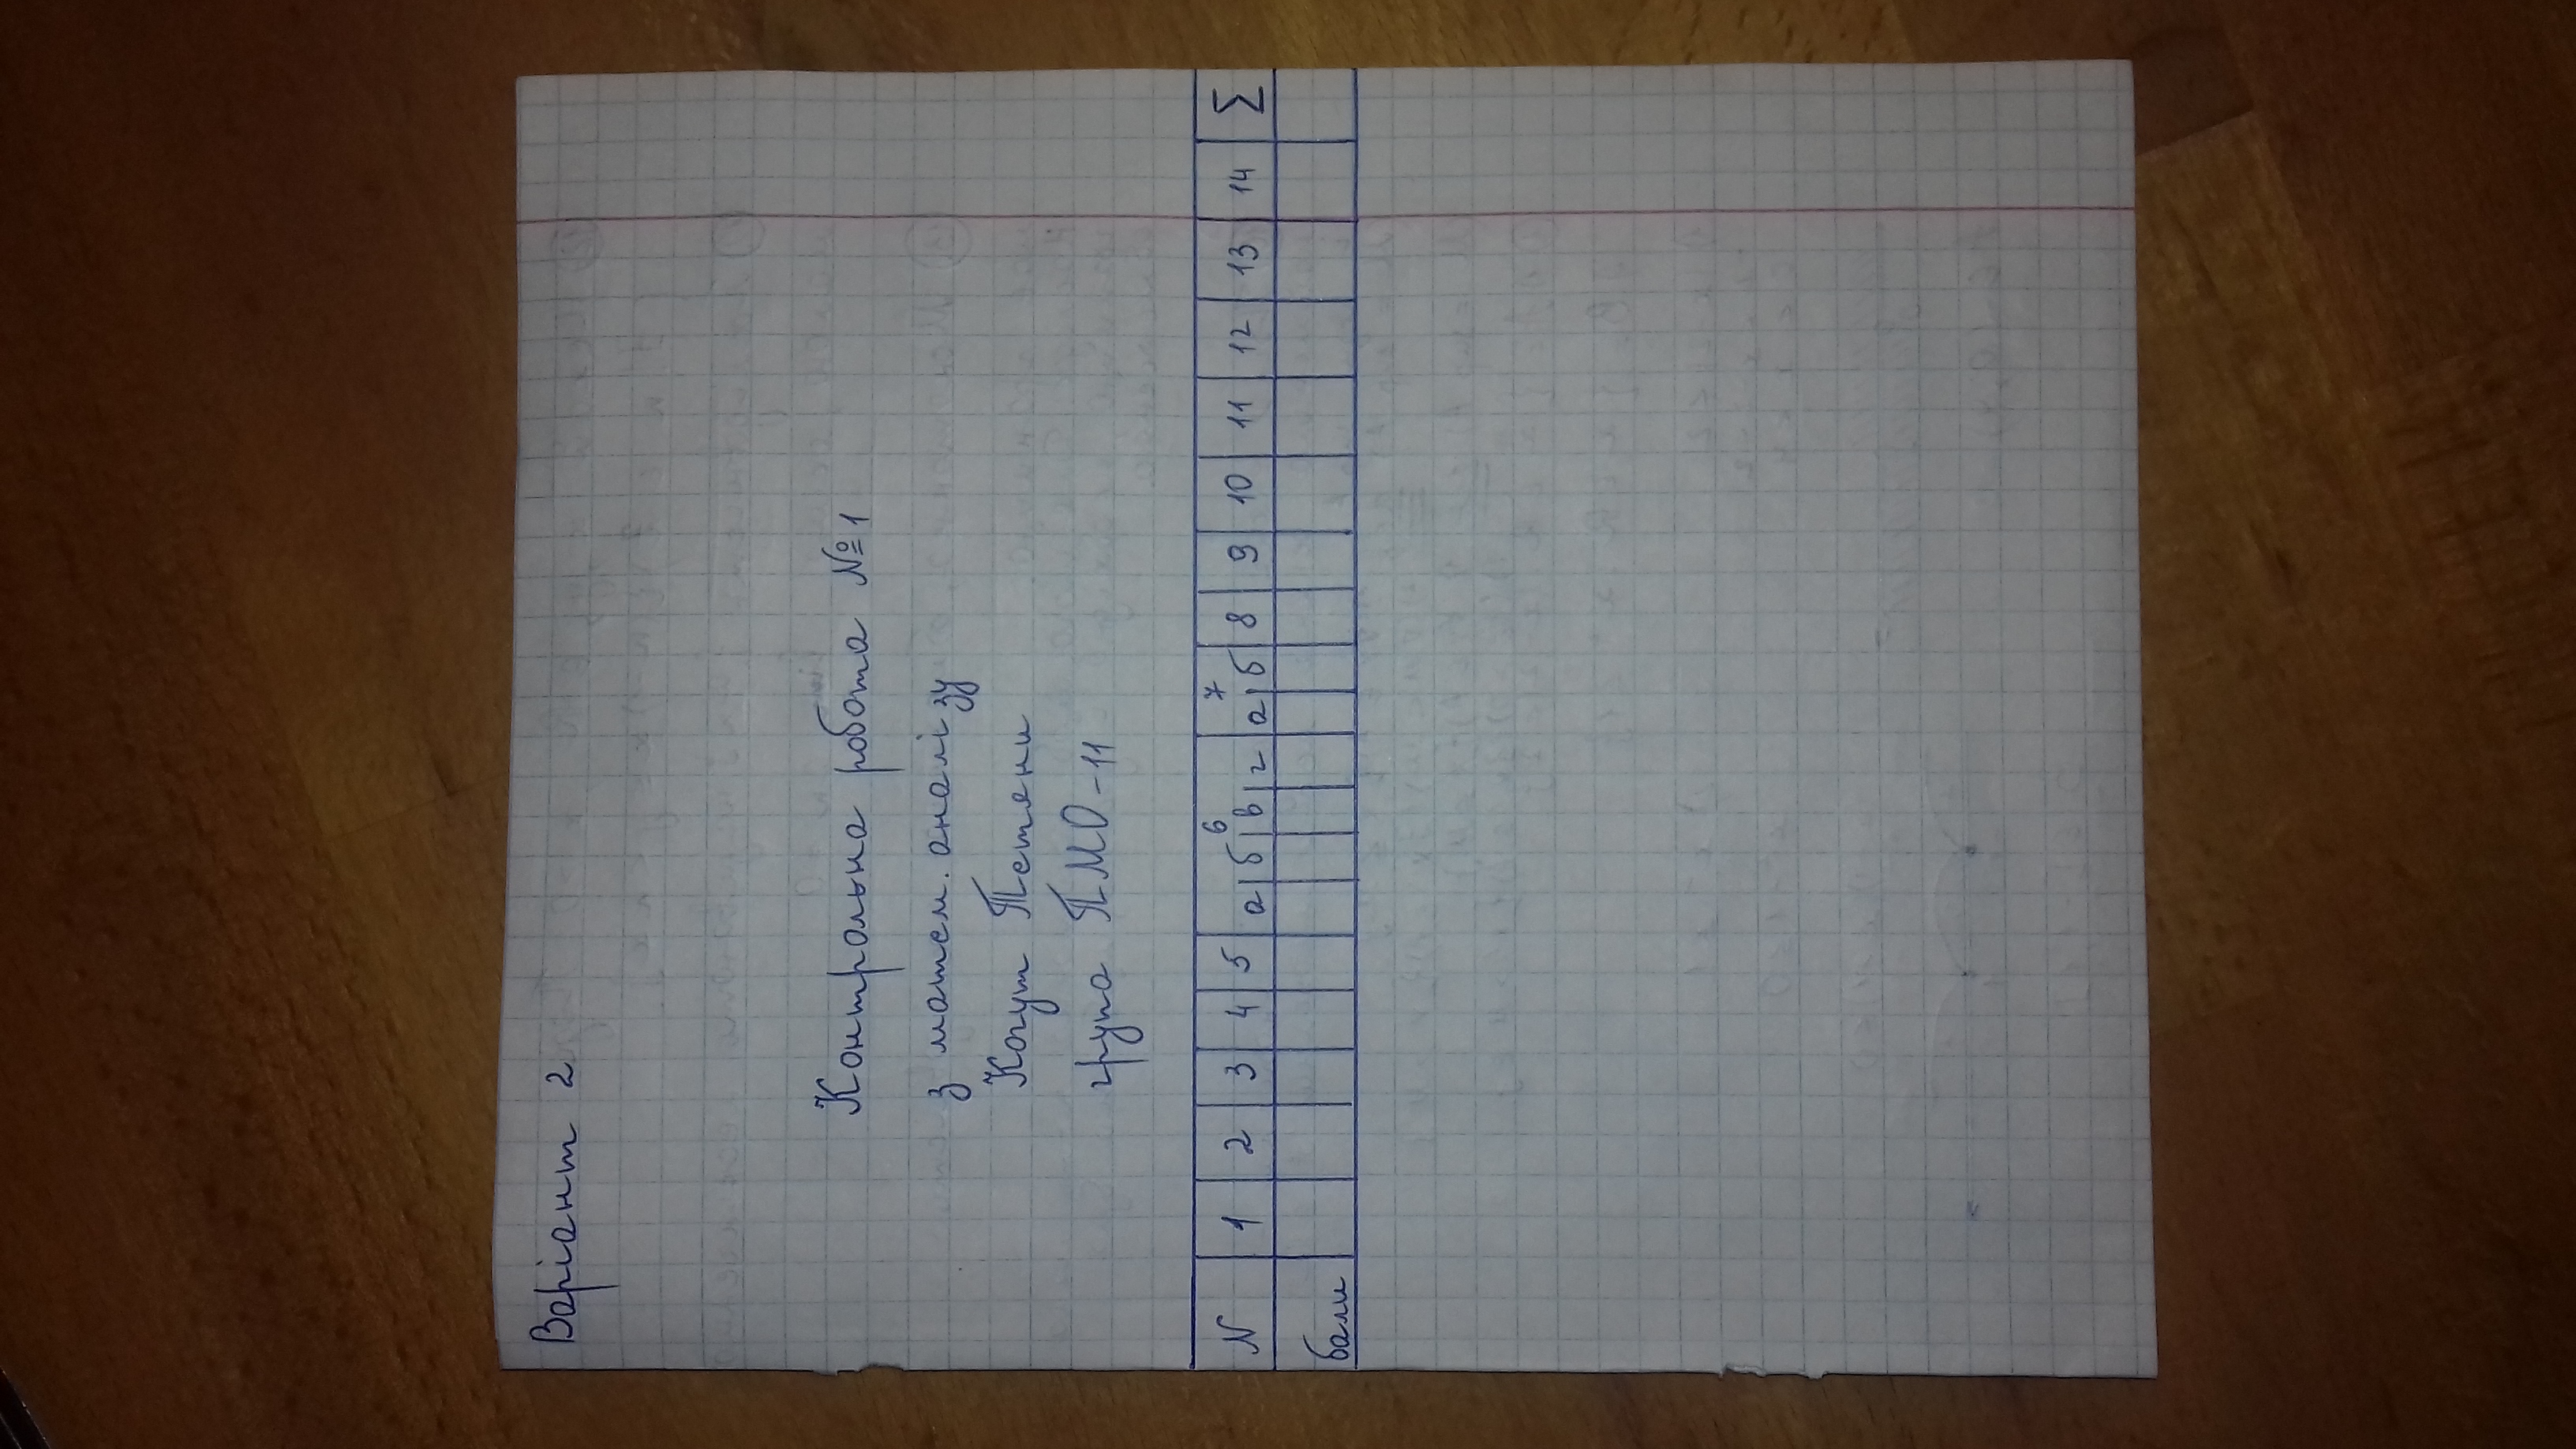 Варіант 2
Контрольна робота №1
з матем. аналізу
Когут Тетяни
група ПМО-11
N 1 2 3 4 5 6 а б в г 7 а б 8 9 10 11 12 13 14 Σ
бали